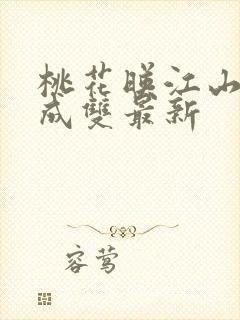 桃花暖江山
成雙最新
容莺